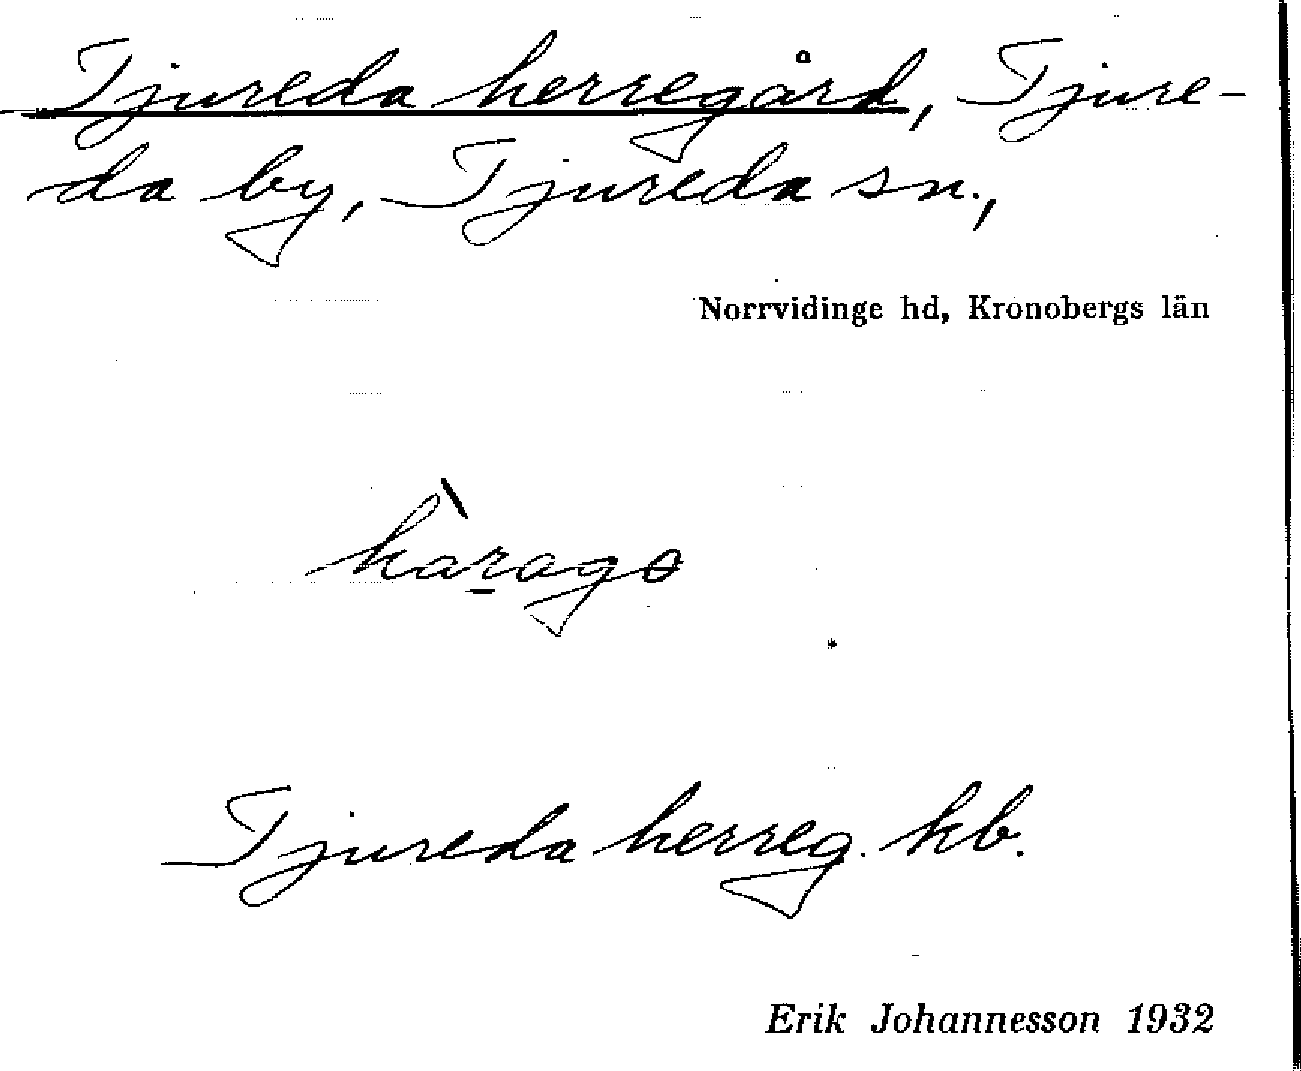 Tjureda herregård, Tjure-
da by, Tjureda sn.,
Norrvidinge hd, Kronobergs län
hàr̲agɵ
Tjureda herreg. kb.
Erik Johannesson 1932